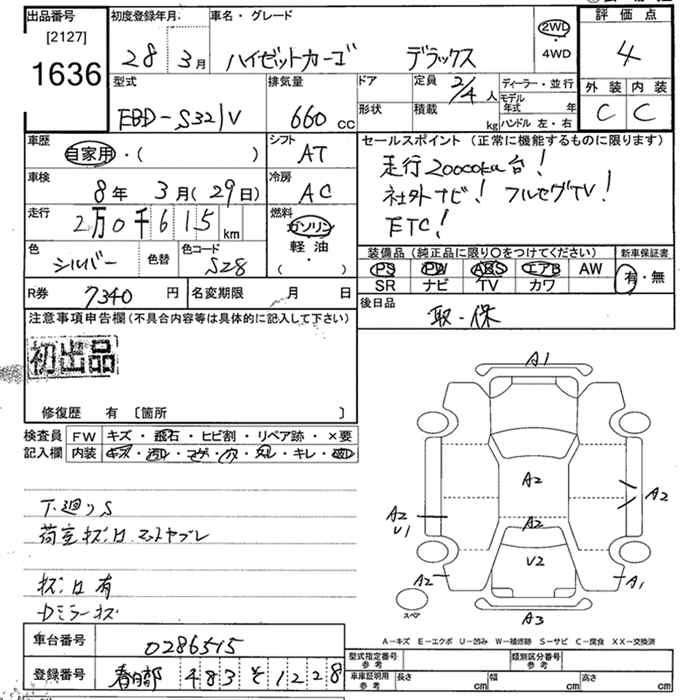 出品番号
[2127]
1636
初度登録年月
28 3月
車名・グレード
ハイゼットカーゴ デラックス
2WD
・
4WD
評価点
4
外装 内装
C C
型式
EBD-S321V
排気量
660 cc
ドア
形状
定員
2/4 人
積載
kg
ディーラー・並行
モデル年式 年
ハンドル 左・右
車歴
自家用・( )
シフト
AT
車検
8年 3月(29日)
冷房
AC
走行
2万0千615 km
燃料
ガソリン
軽油
( ・ )
色
シルバー
色替
色コード
S28
R券
7340 円
名変期限 月 日
セールスポイント(正常に機能するものに限ります)
走行20000km台!
社外ナビ! フルセグTV!
ETC!
装備品(純正品に限り○をつけてください)
新車保証書
PS PW ABS エアB AW
SR ナビ TV カワ
有・無
後日品
取・保
注意事項申告欄(不具合内容等は具体的に記入して下さい)
初出品
修復歴 有 〔箇所 〕
検査員
記入欄
FW キズ・飛石・ヒビ割・リペア跡・×要
内装 キズ・汚レ・コゲ・穴・スレ・キレ・
下廻りS
荷室キズ凹 マットヤブレ
キズ凹有
Dミラーキズ
A1
A2
A2
A2
U1
A2
A2
U2
A2
A1
スペア
A3
A−キズ E−エクボ U−凹み W−補修跡 S−サビ C−腐食 XX−交換済
車台番号
0286515
登録番号
春日部 483 そ 1228
型式指定番号
参考
類別区分番号
参考
車庫証明用
参考
長さ cm
幅 cm
高さ cm